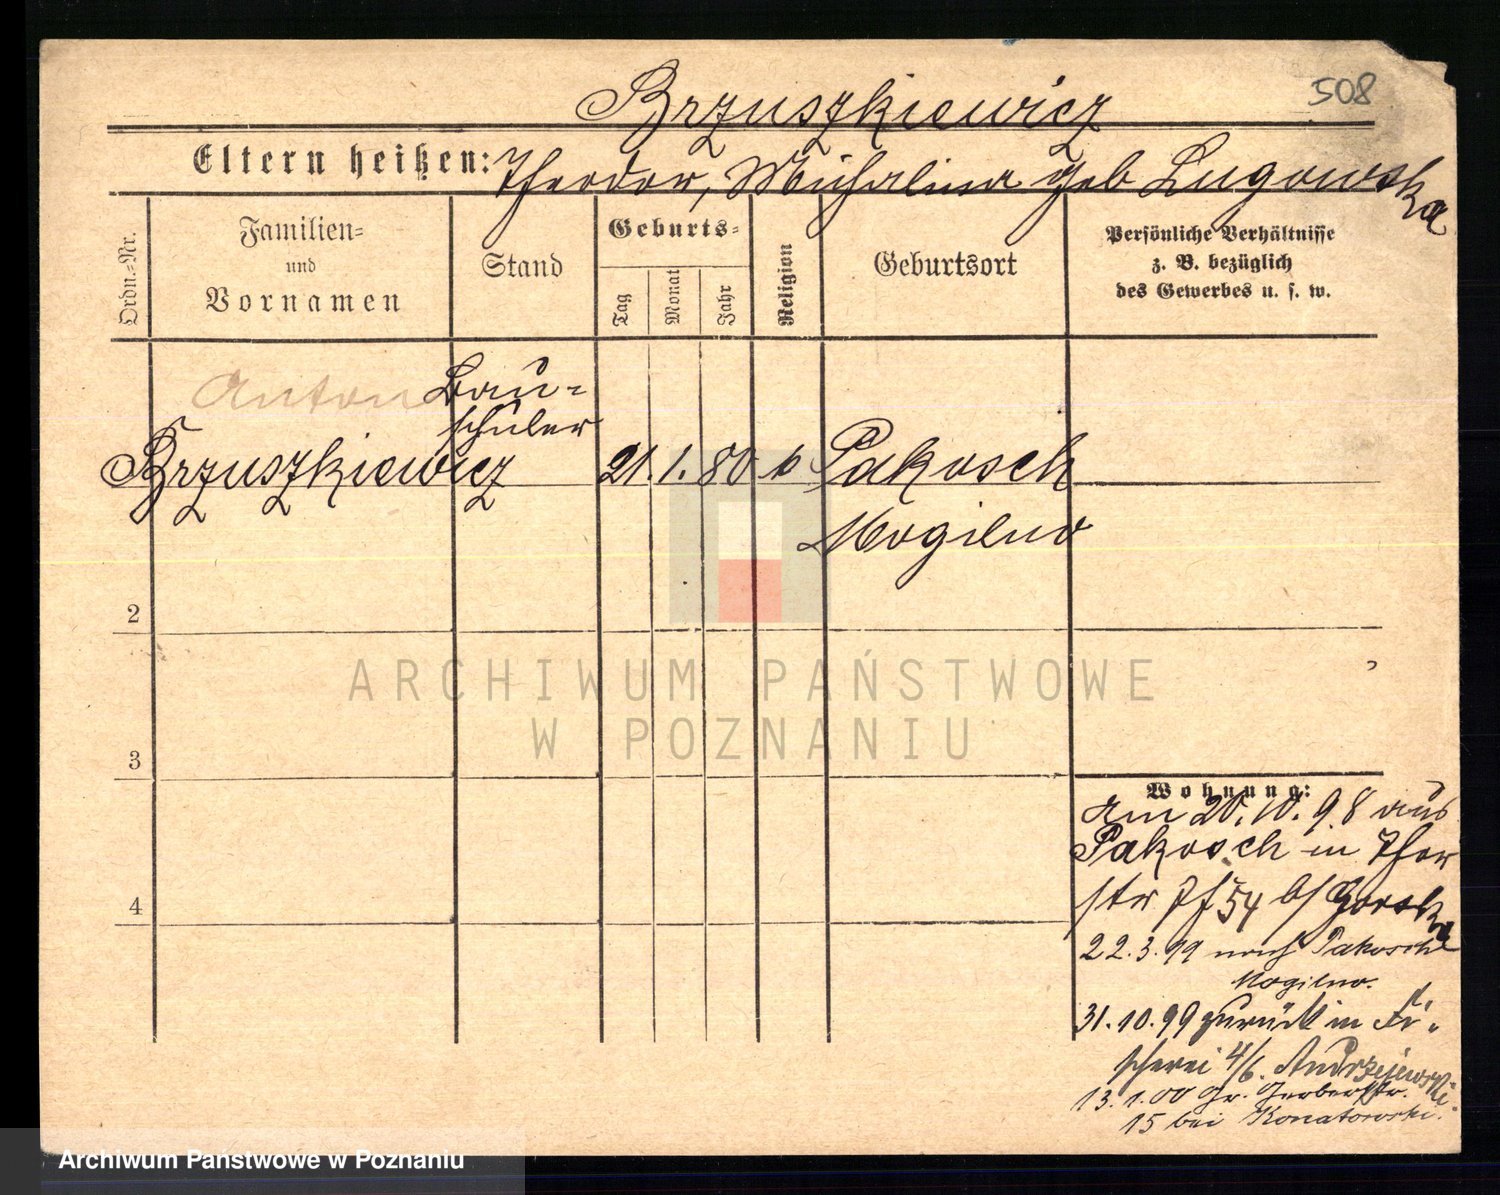 508
Brzuszkiewicz
Eltern heißen: Theodor, Michalina geb Lugowska
Ordn.-Nr.
Familien-
und
Vornamen
Stand
Geburts-
Tag
Monat
Jahr
Religion
Geburtsort
Persönliche Verhältnisse
z. B. bezüglich
des Gewerbes u. s. w.
Anton
Brzuszkiewicz
Bau-
schüler
21. 1. 80 k Pakosch
Mogilno
2
3
4
Wohnung:
am 20. 10. 98 aus
Pakosch in Thor
str 54 b/ Gorska
22. 3. 99 nach Pakosch
Mogilno.
31. 10. 99 zurück in Fi-
scherei 4/6. Andrzejewski.
13. 1. 00 Gr. Gerberstr.
15 bei Konatowski.
ARCHIWUM PAŃSTWOWE
W POZNANIU
Archiwum Państwowe w Poznaniu